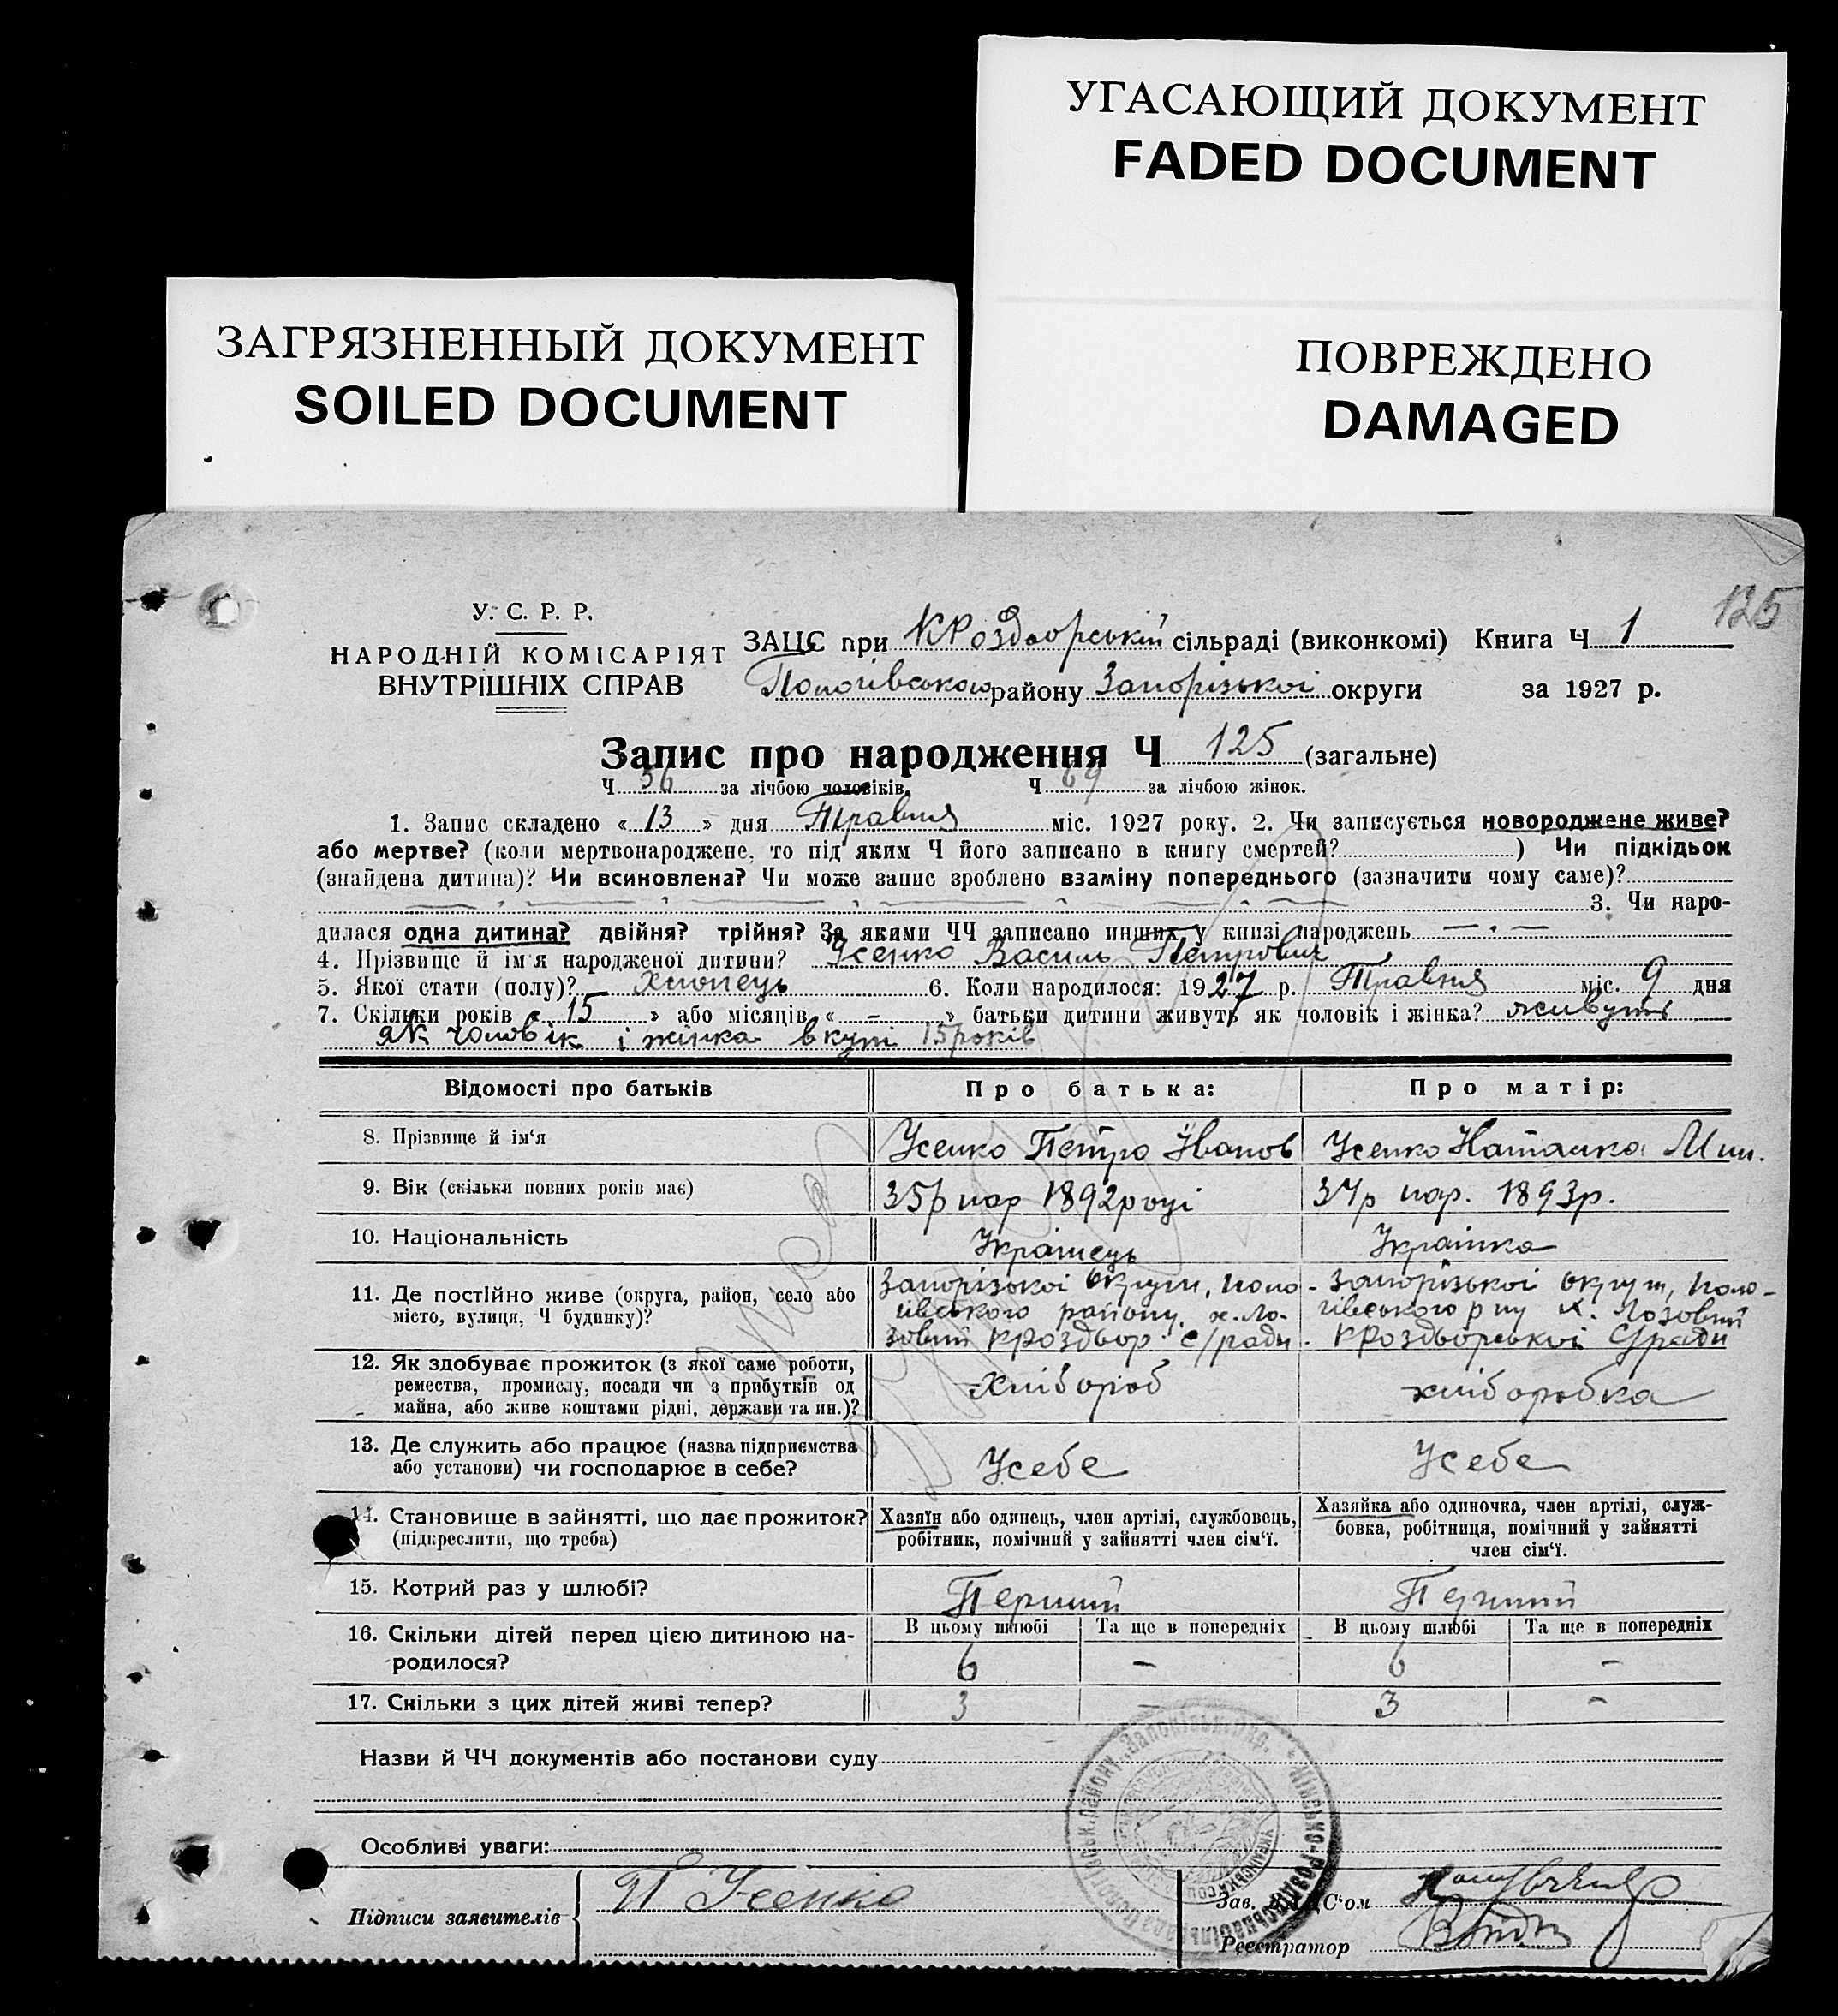 УГАСАЮЩИЙ ДОКУМЕНТ
FADED DOCUMENT
ЗАГРЯЗНЕННЫЙ ДОКУМЕНТ
SOILED DOCUMENT
ПОВРЕЖДЕНО
DAMAGED
125
У. С. Р. Р.
НАРОДНІЙ КОМІСАРІЯТ
ВНУТРІШНІХ СПРАВ
ЗАЦС при КРоздворській сільраді (виконкомі) Книга Ч 1
Пологівського району Запорізької округи за 1927 р.
Запис про народження Ч 125 (загальне)
Ч 56 за лічбою чоловіків. Ч 69 за лічбою жінок.
1. Запис складено « 13 » дня Травня міс. 1927 року. 2. Чи записується новороджене живе?
або мертве? (коли мертвонароджене, то під яким Ч його записано в книгу смертей? ) Чи підкідьок
(знайдена дитина)? Чи всиновлена? Чи може запис зроблено взаміну попереднього (зазначити чому саме)?
3. Чи наро-
дилася одна дитина? двійня? трійня? За якими ЧЧ записано инших у книзі народжень — . —
4. Прізвище й ім'я народженої дитини? Усенко Василь Петрович
5. Якої стати (полу)? Хлопець 6. Коли народилося: 1927 р. Травня міс. 9 дня
7. Скільки років « 15 » або місяців « – » батьки дитини живуть як чоловік і жінка? живуть
як чоловік і жінка вкупі 15 років
Відомості про батьків Про батька: Про матір:
8. Прізвище й ім'я Усенко Петро Іванов Усенко Наталка
9. Вік (скільки повних років має) 35р нар 1892 році 34р нар. 1893р.
10. Національність Українець Українка
11. Де постійно живе (округа, район, село або місто, вулиця, Ч будинку)?
Запорізької округи, Поло-
гівського району, х. Ло-
зовий КРоздвор. с/ради.
Запорізької округи, Поло-
гівського р-ну х. Лозовий
КРоздворської С/ради
12. Як здобуває прожиток (з якої саме роботи,
ремества, промислу, посади чи з прибутків од
майна, або живе коштами рідні, держави та ин.)?
Хлібороб хліборобка
13. Де служить або працює (назва підприємства
або установи) чи господарює в себе?
Усебе Усебе
14. Становище в зайнятті, що дає прожиток?
(підкреслити, що треба)
Хазяїн або одинець, член артілі, службовець,
робітник, помічний у зайнятті член сім'ї.
Хазяйка або одиночка, член артілі, служ-
бовка, робітниця, помічний у зайнятті
член сім'ї.
15. Котрий раз у шлюбі? Перший Перший
В цьому шлюбі Та ще в попередніх В цьому шлюбі Та ще в попередніх
16. Скільки дітей перед цією дитиною на-
родилося? 6 – 6 –
17. Скільки з цих дітей живі тепер? 3 – 3 –
Назви й ЧЧ документів або постанови суду
Особливі уваги:
Підписи заявителів П Усенко
Зав. ЗАЦС'ом
Реєстратор